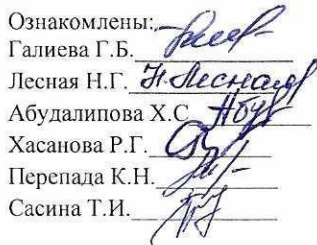 Ознакомлены:
Галиева Г.Б.
Лесная Н.Г. Н.Лесная
Абудалипова Х.С. Абуд
Хасанова Р.Г.
Перепада К.Н.
Сасина Т.И.